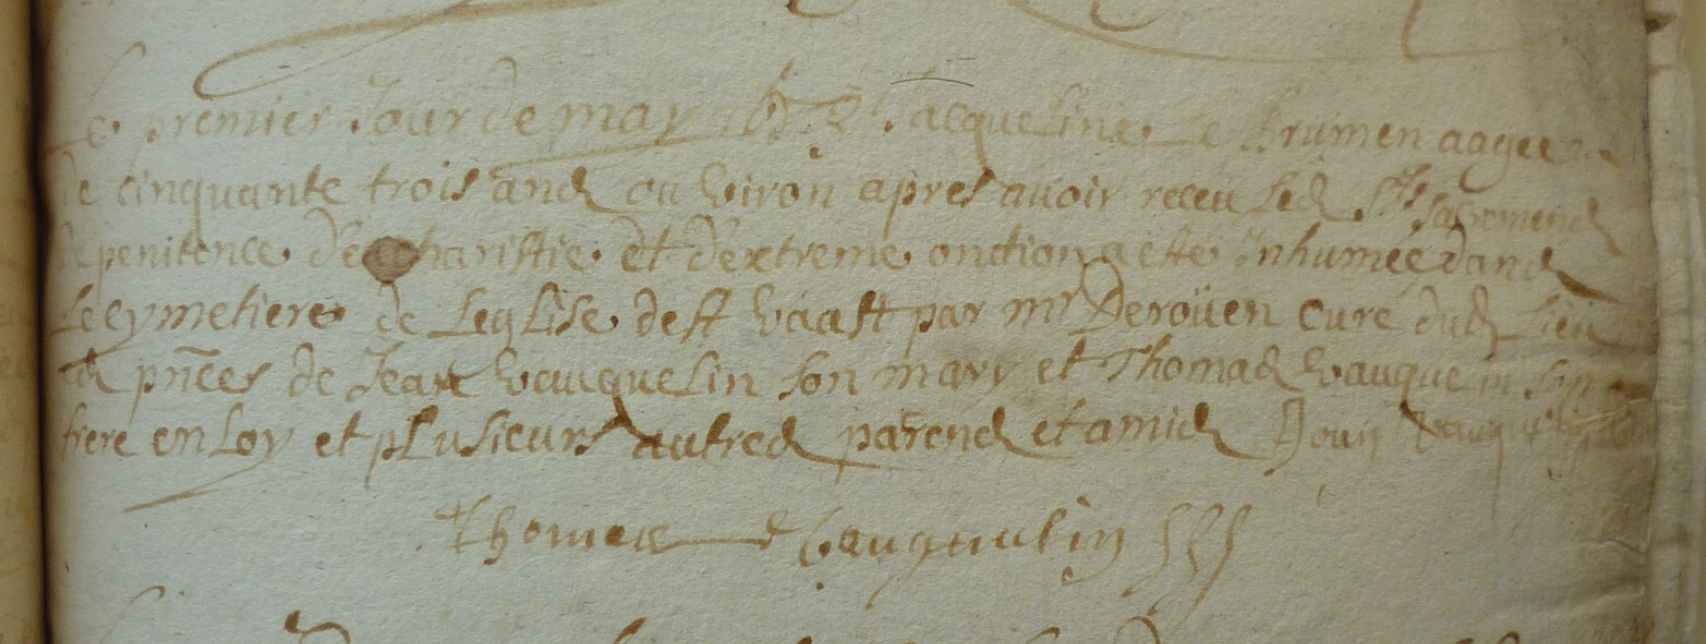 Le premier Jour de may Jacqueline le brumen aagee
de cinquante trois ans ou viron apres avoir receu les Sts sacremens
de penitence d'eucharistie et d'extreme onction a esté Inhumée dans
Le cymetiere de Leglise de st vaast par mr Deroüen curé dud lieu
es pñces de Jean vauquelin son mary et Thomas vauquelin son
frere en Loy et plusieurs autres parens et amis
Thomas vauquelin